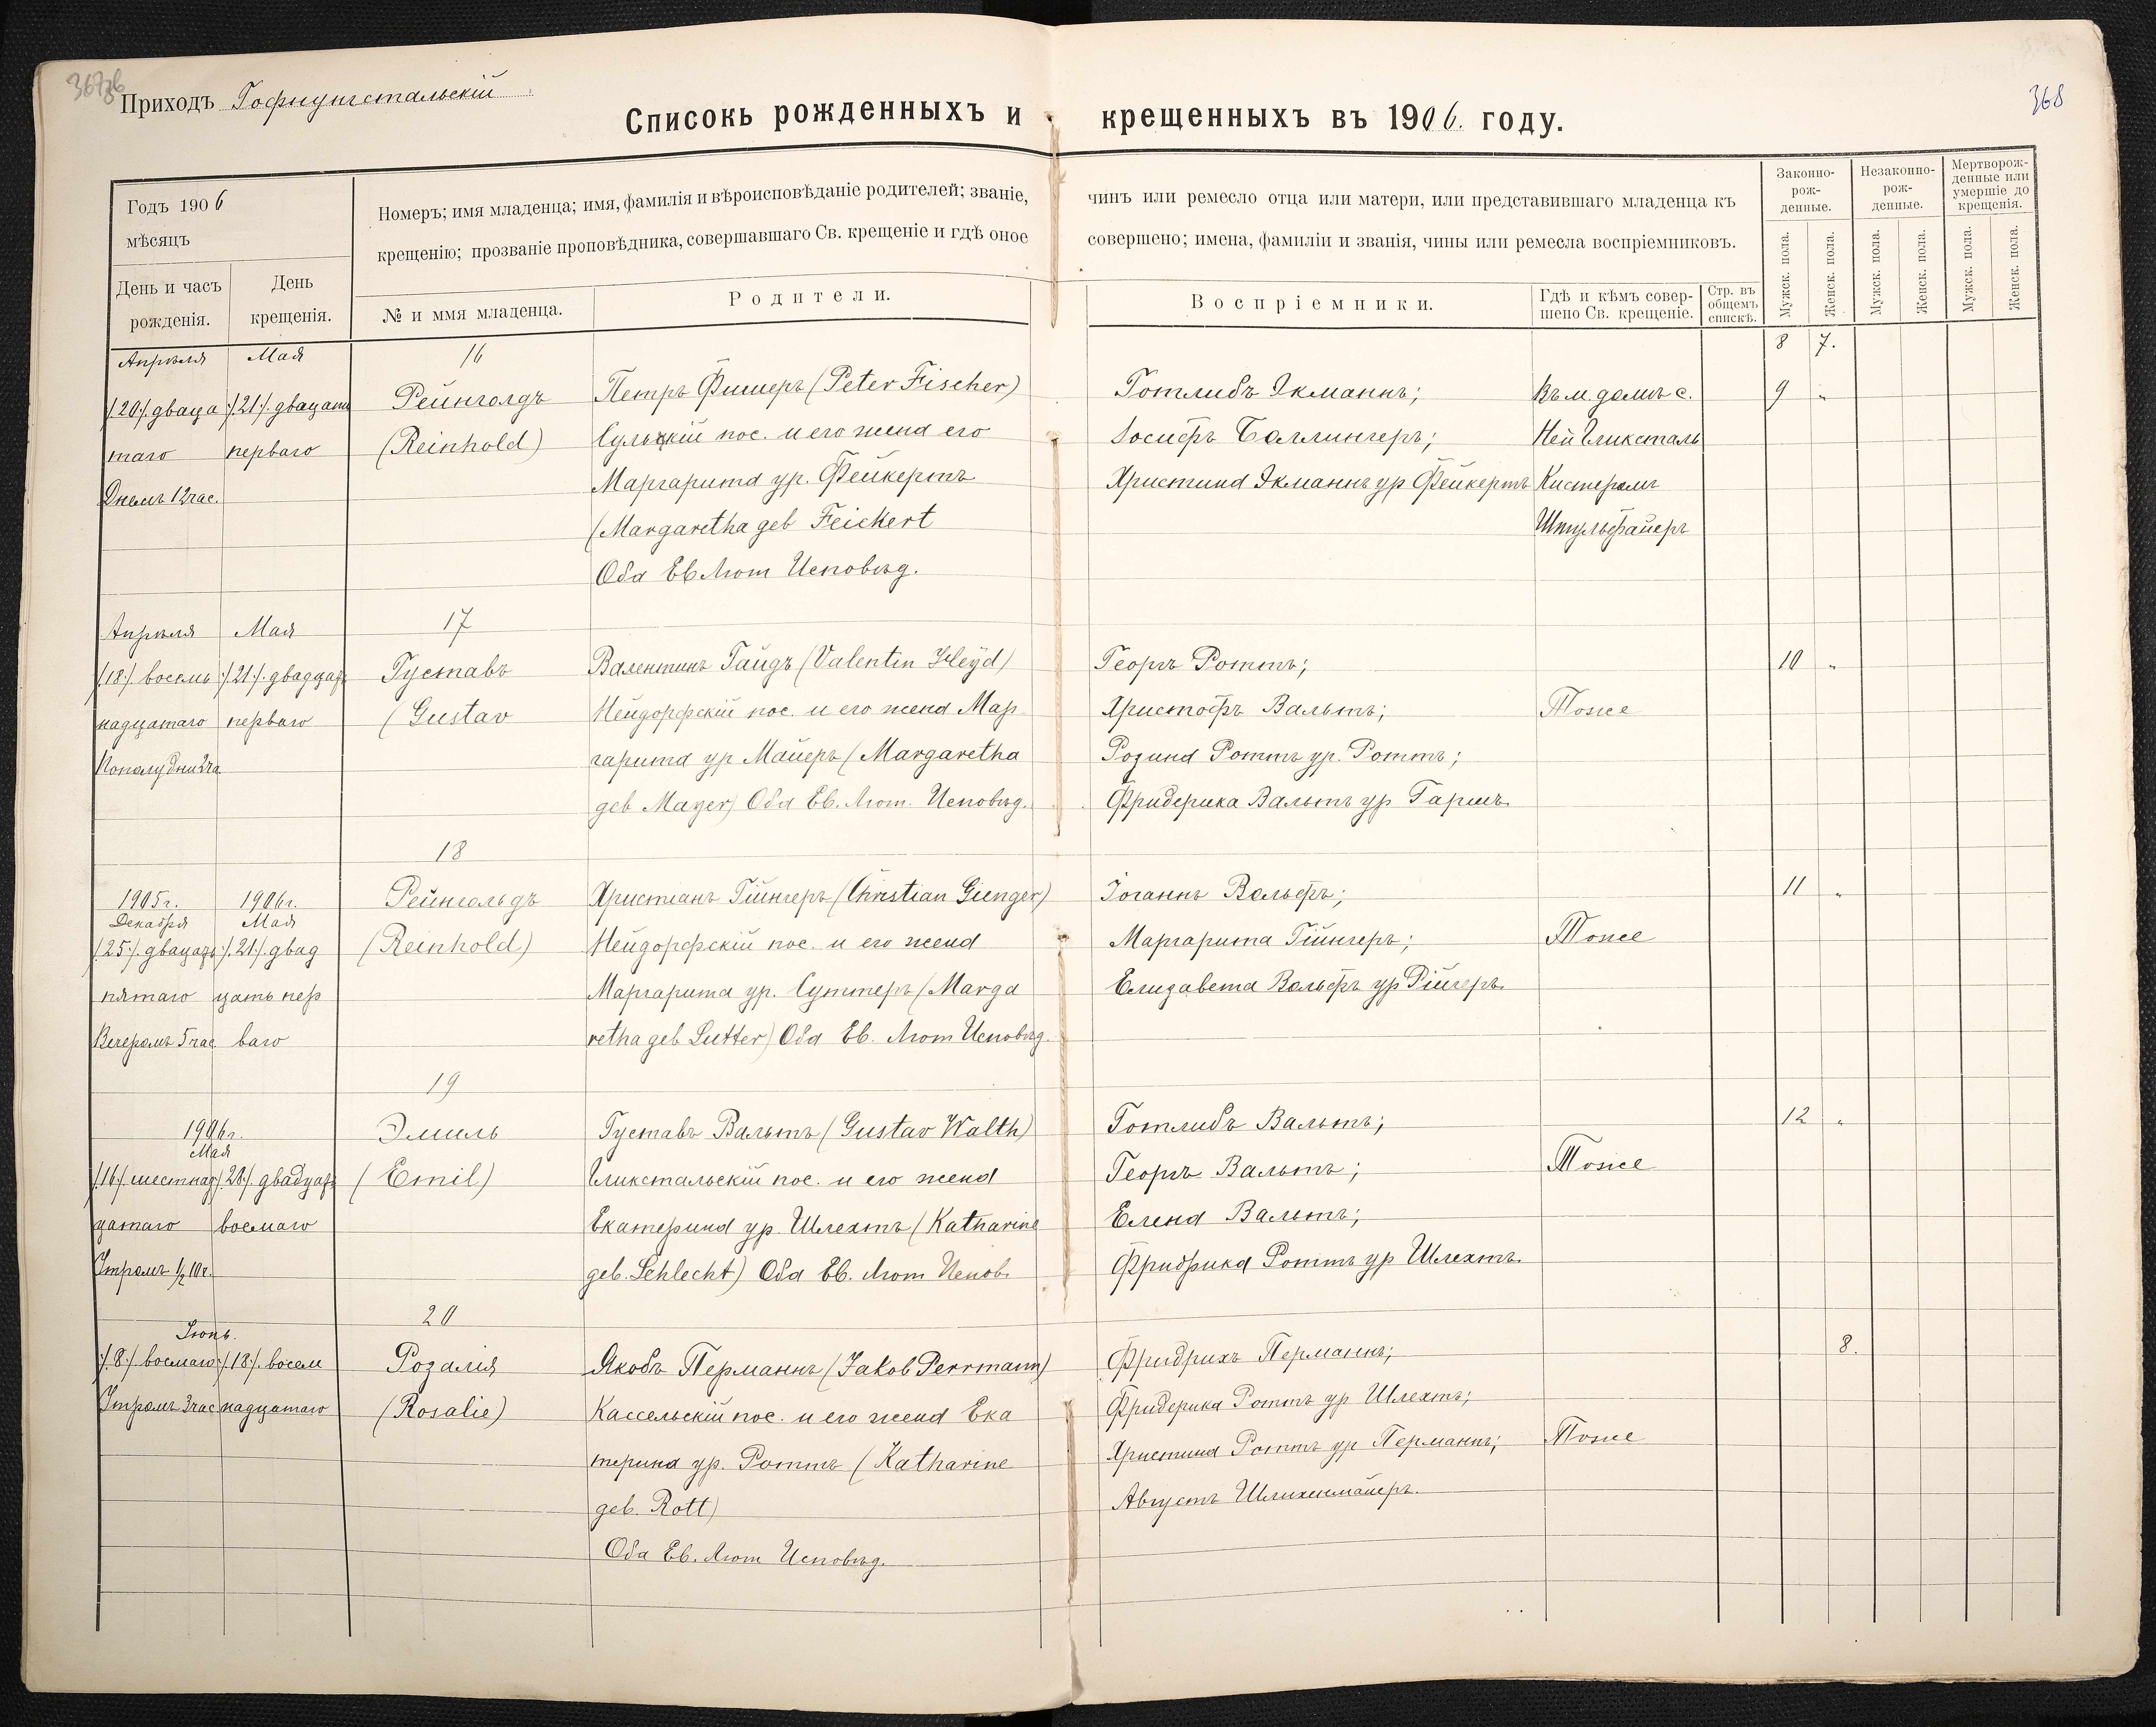 367об
368
Приходъ Гофнунгстальскій
Списокъ рожденныхъ и крещенныхъ въ 1906. году.
Годъ 1906
мѣсяцъ
День и часъ рожденія.
День крещенія.
Номеръ; имя младенца; имя, фамилія и вѣроисповѣданіе родителей; званіе, чинъ или ремесло отца или матери, или представившаго младенца къ
крещенію; прозваніе проповѣдника, совершавшаго Св. крещеніе и гдѣ оное совершено; имена, фамиліи и званія, чины или ремесла воспріемниковъ.
№ и ммя младенца.
Родители.
Воспріемники.
Гдѣ и кѣмъ совер-
шено Св. крещеніе.
Стр. въ
общемъ
спискѣ.
Законно-
рож-
денные.
Незаконно-
рож-
денные.
Мертворож-
денные или
умершіе до
крещенія.
Мужск. пола.
Женск. пола.
Мужск. пола.
Женск. пола.
Мужск. пола.
Женск. пола.
8 7.
Апрѣля
/:20:/ дваца
таго
Днемъ 12 час.
Мая
/:21:/ двацати
перваго
16
Рейнголдъ
(Reinhold)
Петръ Фишеръ (Peter Fischer)
пос. и его жена его
Маргарита ур. Фейкертъ
(Margaretha geb Feickert
Оба Ев Лют Исповѣд.
Готлибъ Экманнъ;
Іосифъ Боллингеръ;
Христина Экманнъ ур Фейкертъ
Въ м. домѣ с.
Ней Гликсталь
Кистеромъ
Штульфайеръ
9 "
Апрѣля
/:18:/ восемь
надцатаго
Пополудни 2 ча
Мая
/:21:/ двадцать
перваго
17
Густавъ
(Gustav
Валентинъ Гайдъ (Valentin Heÿd)
Нейдорфскій пос. и его жена Мар
гарита ур Майеръ (Margaretha
geb Mayer) Оба Ев. Лют. Исповѣд.
Георгъ Роттъ;
Христофъ Вальтъ;
Розина Роттъ ур. Роттъ;
Фридерика Вальтъ ур Гаршъ
Тоже
10 "
1905г.
Декабря
/:25:/ двацать
пятаго
Вечеромъ 5 час
1906г.
Мая
/:21:/ двад
цать пер
ваго
18
Рейнгольдъ
(Reinhold)
Христіанъ Гіингеръ (Christian Gienger)
Нейдорфскій пос. и его жена
Маргарита ур. Суттеръ (Marga
retha geb Sutter) Оба Ев. Лют Исповѣд.
Іоганнъ Вольфъ;
Маргарита Гіингеръ;
Елизавета Вольфъ ур Рійгеръ
Тоже
11 "
1906г.
Мая
/:16:/ шестнад
цатаго
Утромъ 1/2 10 ч.
/:28:/ двадцать
восмаго
19
Эмиль
(Emil)
Густавъ Вальтъ (Gustav Walth)
Гликстальскій пос. и его жена
Екатерина ур. Шлехтъ (Katharine
geb. Schlecht) Оба Ев. Лют Испов.
Готлибъ Вальтъ;
Георгъ Вальтъ;
Елена Вальтъ;
Фридрика Роттъ ур Шлехтъ
Тоже
12 "
Іюнь.
/:8:/ восмаго
Утромъ 3 час
/:18:/ восем
надцатаго
20
Розалія
(Rosalie)
Якобъ Перманнъ (Jakob Perrmann)
Кассельскій пос. и его жена Ека
терина ур. Роттъ (Katharine
geb. Rott)
Оба Ев. Лют Исповѣд.
Фридрихъ Перманнъ;
Фридерика Роттъ ур Шлехтъ;
Христина Роттъ ур Перманнъ;
Августъ Шлихенмайеръ.
Тоже
8.